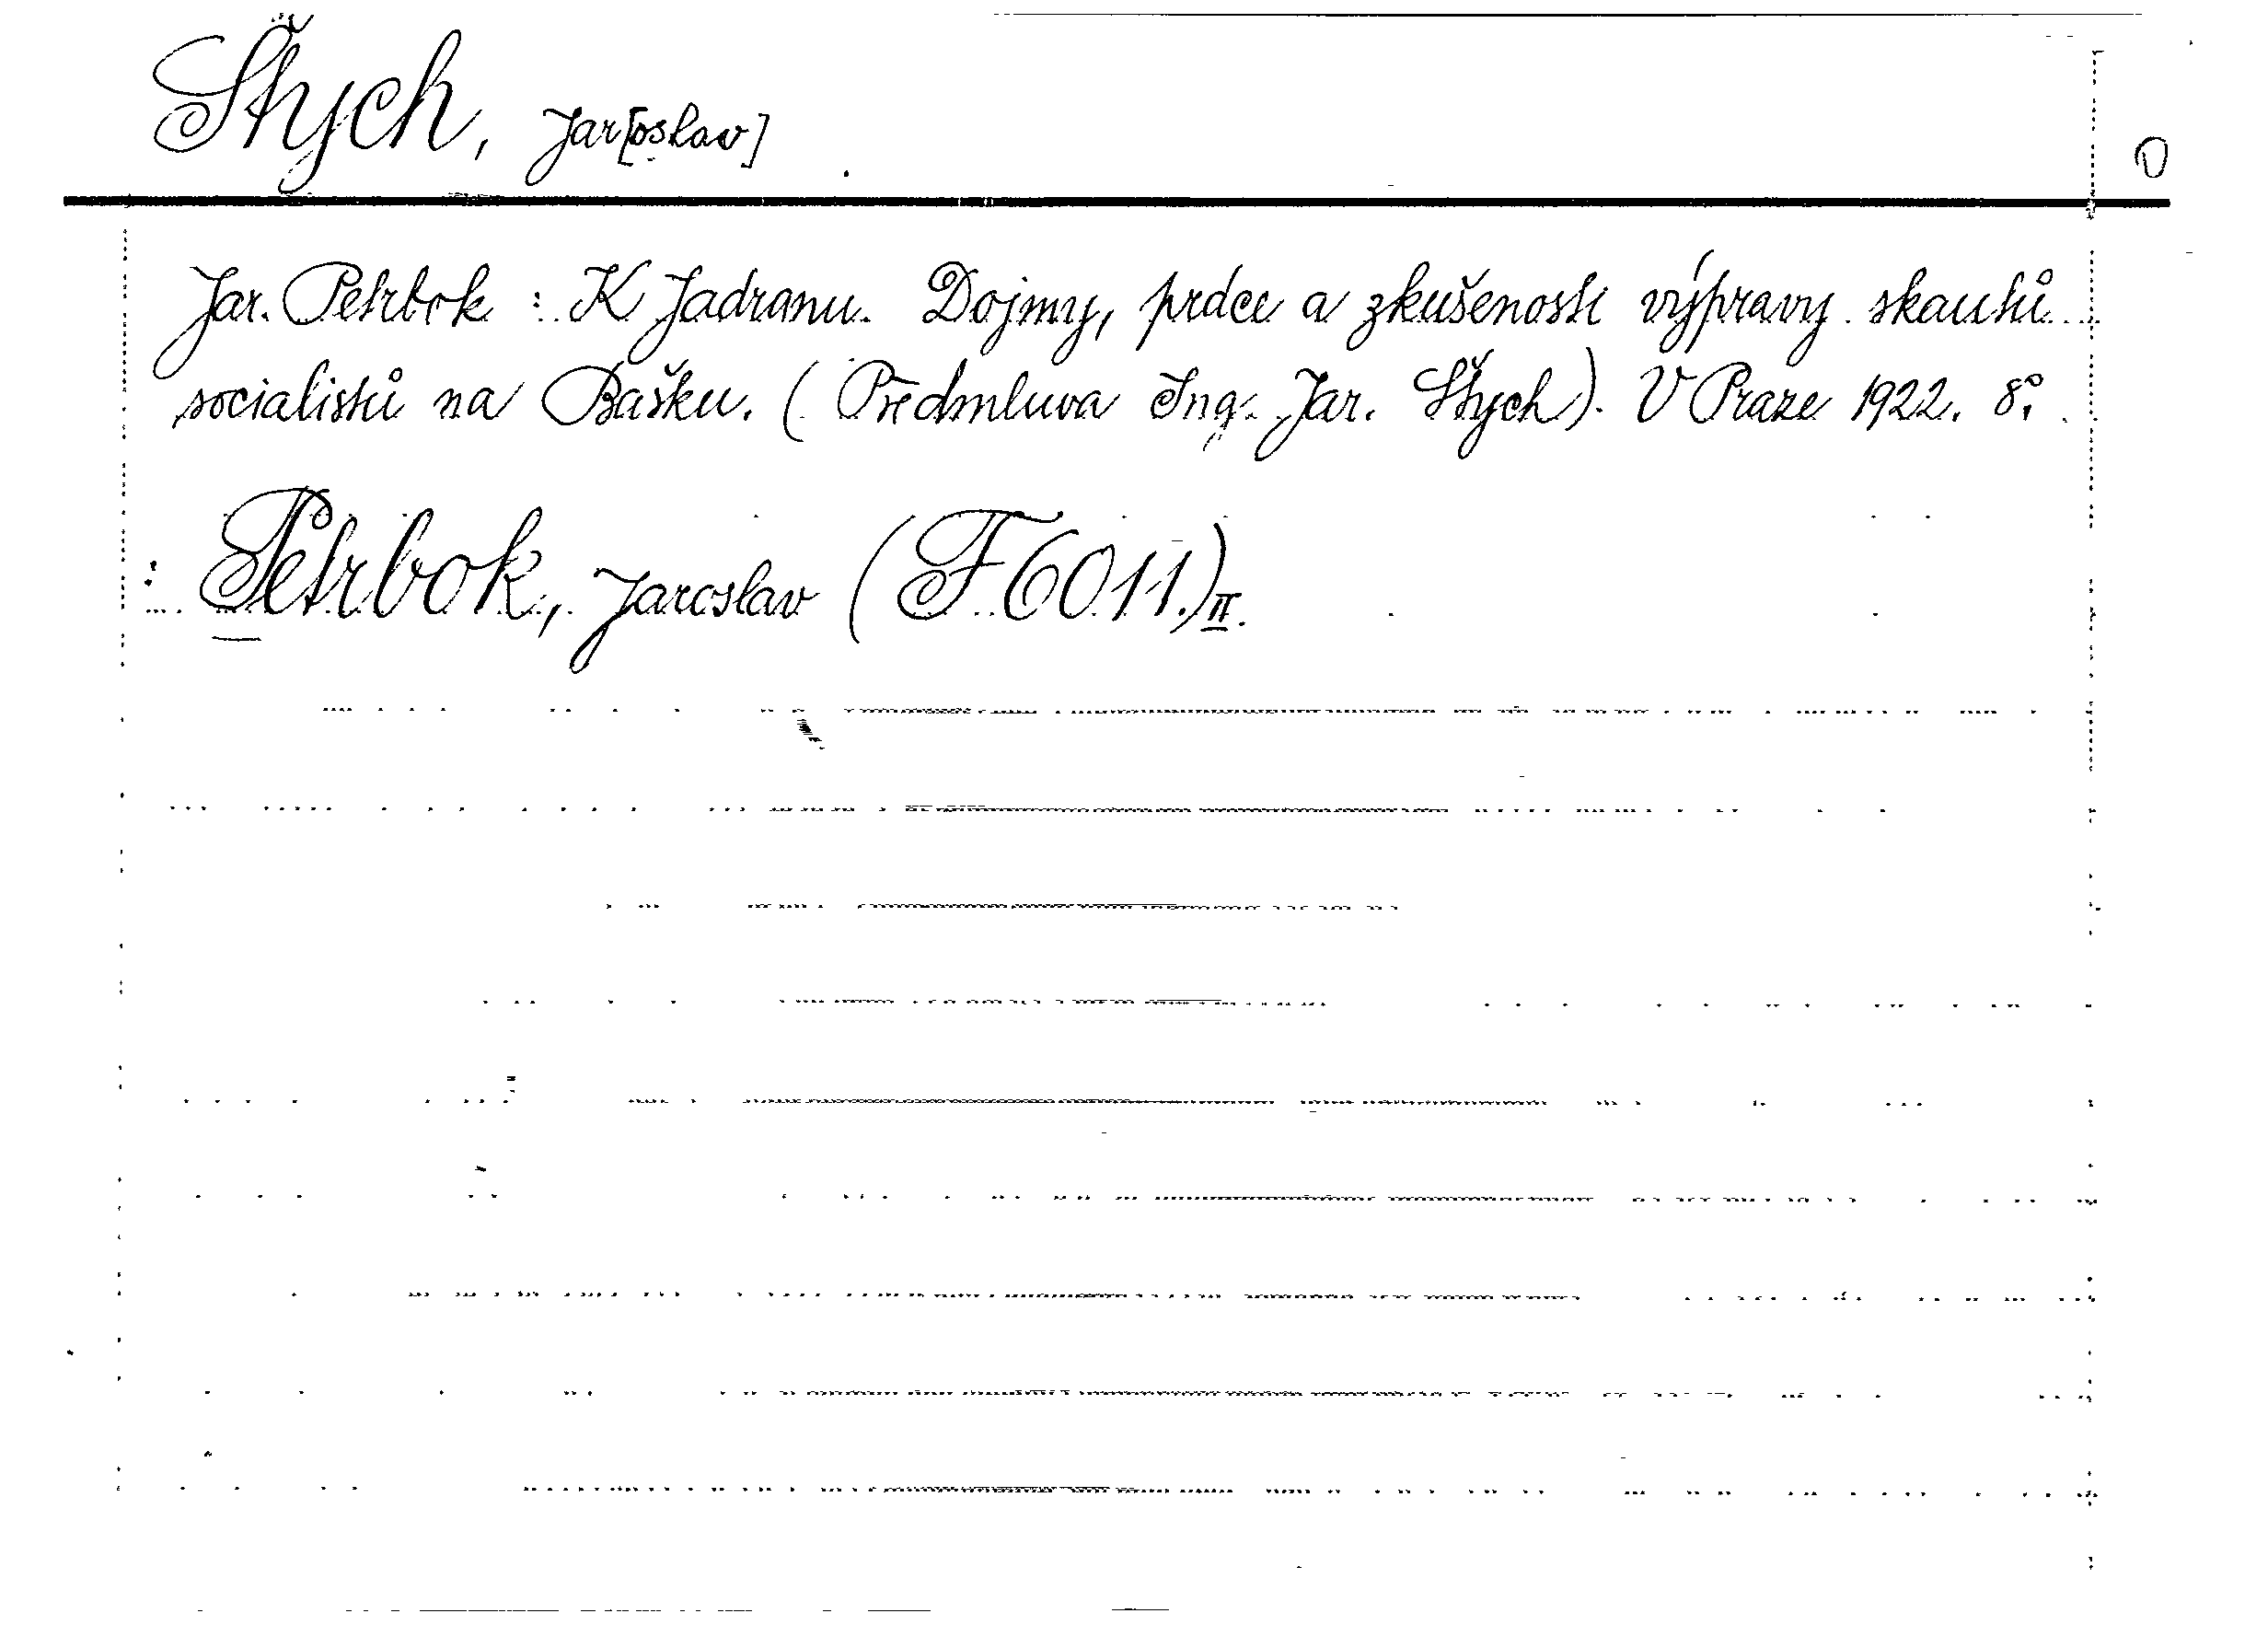 Štych, Jar[oslav]
O
Jar. Petrbok : K Jadranu. Dojmy, práce a zkušenosti výpravy skautů
socialistů na Bašku. (Předmluva Ing. Jar. Štych). V Praze 1922. 8°.
: Petrbok, Jaroslav (F 6011.) II.